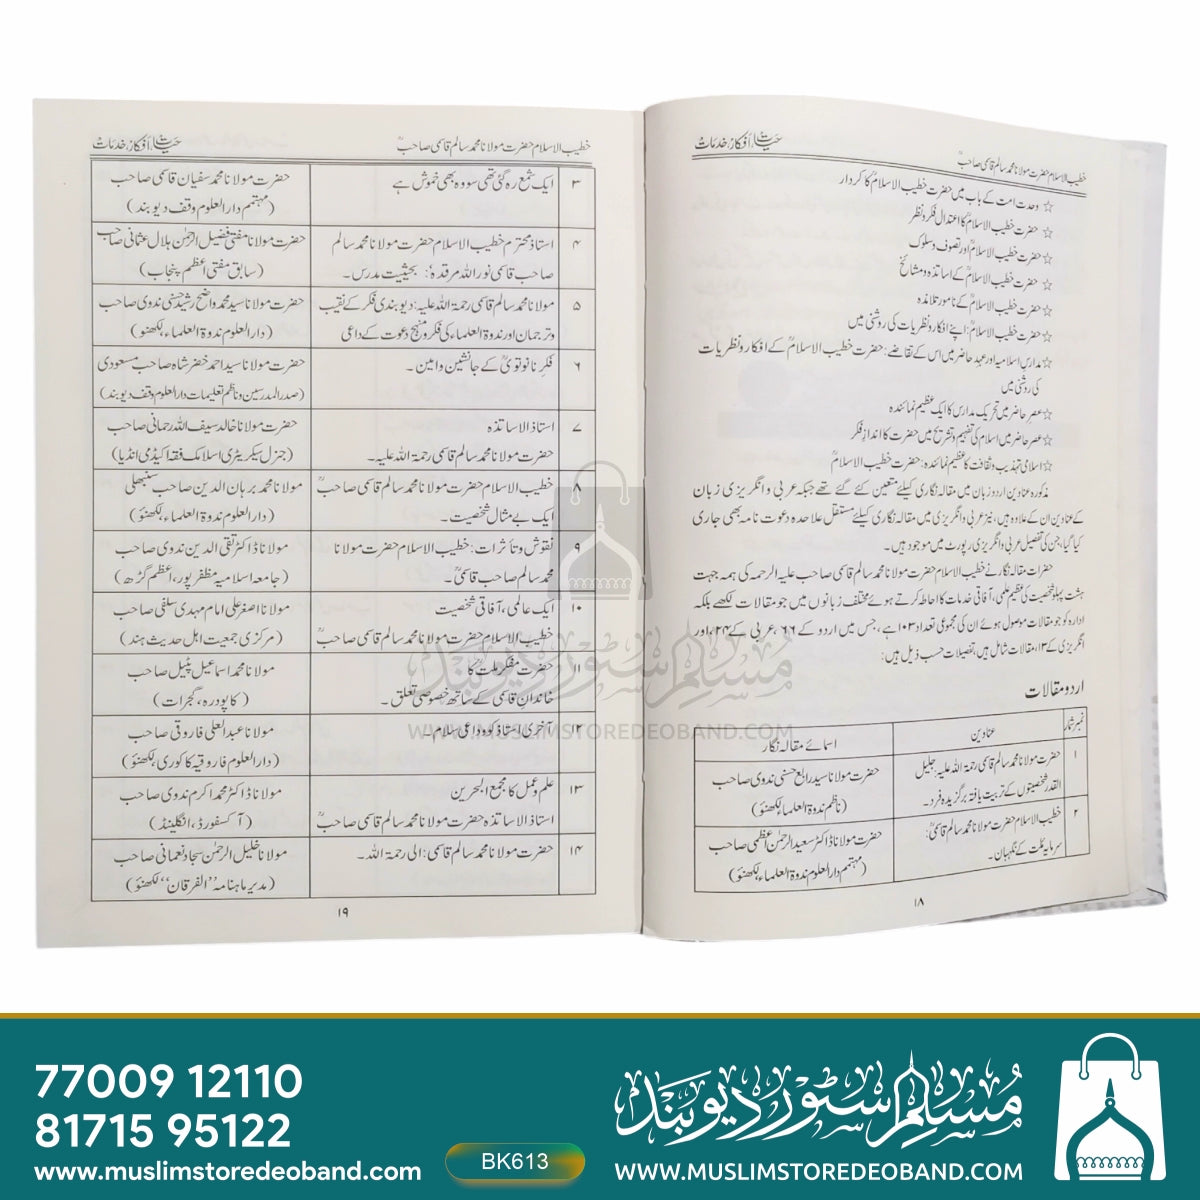 خطیب الاسلام حضرت مولانا محمد سالم قاسمی صاحبؒ
حیات، افکار، خدمات
☆ وحدت امت کے باب میں حضرت خطیب الاسلامؒ کا کردار
☆ حضرت خطیب الاسلامؒ کا اعتدال فکر و نظر
☆ حضرت خطیب الاسلامؒ اور تصوف و سلوک
☆ حضرت خطیب الاسلامؒ کے اساتذہ و مشائخ
☆ حضرت خطیب الاسلامؒ کے نامور تلامذہ
☆ حضرت خطیب الاسلامؒ: اپنے افکار و نظریات کی روشنی میں
☆ مدارس اسلامیہ اور عہد حاضر میں اس کے تقاضے: حضرت خطیب الاسلامؒ کے افکار و نظریات
کی روشنی میں
☆ عصر حاضر میں تحریک مدارس کا ایک عظیم نمائندہ
☆ عصر حاضر میں اسلام کی تفہیم و تشریح میں حضرت کا انداز فکر
☆ اسلامی تہذیب و ثقافت کا عظیم نمائندہ: حضرت خطیب الاسلامؒ
مذکورہ عناوین اردو زبان میں مقالہ نگاری کیلئے متعین کئے گئے تھے جبکہ عربی و انگریزی زبان
کے عناوین ان کے علاوہ ہیں، نیز عربی و انگریزی میں مقالہ نگاری کیلئے مستقل علاحدہ دعوت نامہ بھی جاری
کیا گیا، جن کی تفصیل عربی و انگریزی رپورٹ میں موجود ہیں۔
حضرات مقالہ نگار نے خطیب الاسلام حضرت مولانا محمد سالم قاسمی صاحب علیہ الرحمہ کی ہمہ جہت
ہشت پہلو شخصیت کی عظیم علمی، آفاقی خدمات کا احاطہ کرتے ہوئے مختلف زبانوں میں جو مقالات لکھے بلکہ
ادارہ کو جو مقالات موصول ہوئے ان کی مجموعی تعداد ۱۰۳ ہے، جس میں اردو کے ۶۶، عربی کے ۲۴، اور
انگریزی کے ۱۳، مقالات شامل ہیں، تفصیلات حسب ذیل ہیں:
اردو مقالات
نمبر شمار عناوین اسمائے مقالہ نگار
۱ حضرت مولانا محمد سالم قاسمی رحمۃ اللہ علیہ: جلیل حضرت مولانا سید رابع حسنی ندوی صاحب
القدر شخصیتوں کے تربیت یافتہ برگزیدہ فرد۔ (ناظم ندوۃ العلماء لکھنؤ)
۲ خطیب الاسلام حضرت مولانا محمد سالم قاسمیؒ: حضرت مولانا ڈاکٹر سعید الرحمٰن اعظمی صاحب
سرمایہ ملت کے نگہبان۔ (مہتمم دارالعلوم ندوۃ العلماء لکھنؤ)
۱۸
خطیب الاسلام حضرت مولانا محمد سالم قاسمی صاحبؒ
حیات، افکار، خدمات
۳ ایک شمع رہ گئی تھی سو وہ بھی خموش ہے حضرت مولانا محمد سفیان قاسمی صاحب
(مہتمم دارالعلوم وقف دیوبند)
۴ استاذ محترم خطیب الاسلام حضرت مولانا محمد سالم حضرت مولانا مفتی فضیل الرحمٰن ہلال عثمانی صاحب
صاحب قاسمی نور اللہ مرقدہ: بحیثیت مدرس۔ (سابق مفتی اعظم پنجاب)
۵ مولانا محمد سالم قاسمی رحمۃ اللہ علیہ: دیوبندی فکر کے نقیب حضرت مولانا سید محمد واضح رشید حسنی ندوی صاحب
و ترجمان اور ندوۃ العلماء کی فکر و منہج دعوت کے داعی (دارالعلوم ندوۃ العلماء، لکھنؤ)
۶ فکر نانوتویؒ کے جانشین و امین۔ حضرت مولانا سید احمد خضر شاہ صاحب مسعودی
(صدر المدرسین و ناظم تعلیمات دارالعلوم وقف دیوبند)
۷ استاذ الاساتذہ حضرت مولانا خالد سیف اللہ رحمانی صاحب
حضرت مولانا محمد سالم قاسمی رحمۃ اللہ علیہ۔ (جنرل سیکریٹری اسلامک فقہ اکیڈمی انڈیا)
۸ خطیب الاسلام حضرت مولانا محمد سالم قاسمی صاحبؒ مولانا محمد برہان الدین صاحب سنبھلی
ایک بے مثال شخصیت۔ (دارالعلوم ندوۃ العلماء، لکھنؤ)
۹ نقوش و تأثرات: خطیب الاسلام حضرت مولانا مولانا ڈاکٹر تقی الدین ندوی صاحب
محمد سالم صاحب قاسمیؒ۔ (جامعہ اسلامیہ مظفر پور، اعظم گڑھ)
۱۰ ایک عالمی، آفاقی شخصیت مولانا اصغر علی امام مہدی سلفی صاحب
خطیب الاسلام حضرت مولانا محمد سالم قاسمی صاحبؒ (مرکزی جمعیت اہل حدیث ہند)
۱۱ حضرت مفکر ملتؒ کا مولانا اسماعیل پٹیل صاحب
خاندان قاسمی کے ساتھ خصوصی تعلق۔ (کاپودرہ، گجرات)
۱۲ آخری استاذ کو وداعی سلام۔ مولانا عبدالعلی فاروقی صاحب
(دارالعلوم فاروقیہ کاکوری، لکھنؤ)
۱۳ علم و عمل کا مجمع البحرین مولانا ڈاکٹر محمد اکرم ندوی صاحب
استاذ الاساتذہ حضرت مولانا محمد سالم قاسمی صاحبؒ (آکسفورڈ، انگلینڈ)
۱۴ حضرت مولانا محمد سالم قاسمی: الی رحمۃ اللہ۔ مولانا خلیل الرحمٰن سجاد نعمانی صاحب
(مدیر ماہنامہ ”الفرقان“ لکھنؤ)
۱۹
مسلم سٹور دیوبند
WWW.MUSLIMSTOREDEOBAND.COM
77009 12110
81715 95122
www.muslimstoredeoband.com
BK613
مسلم سٹور دیوبند
WWW.MUSLIMSTOREDEOBAND.COM